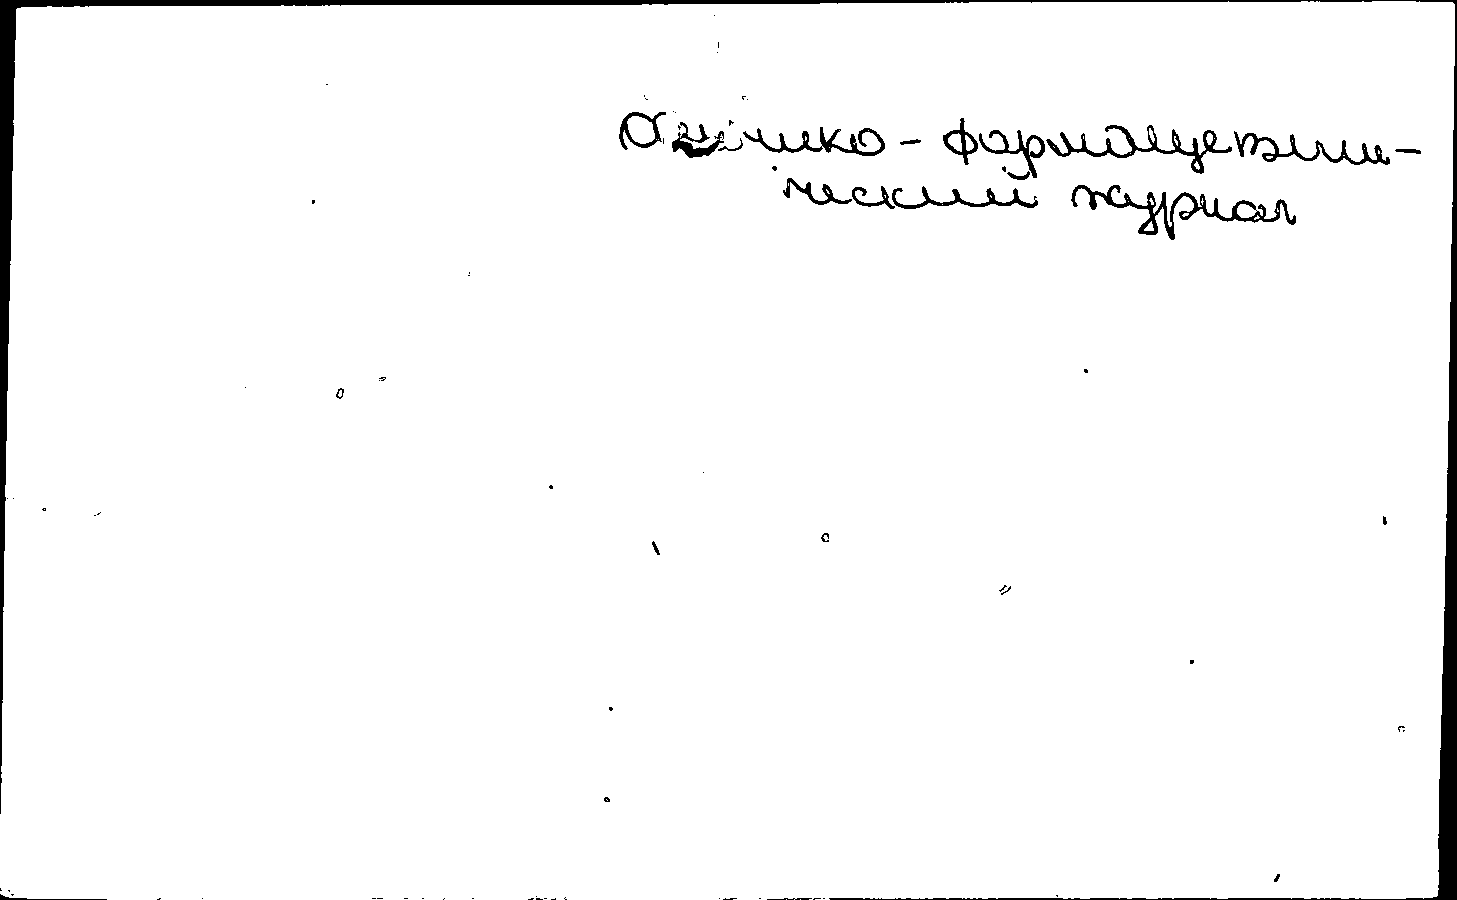 Химико-фармацевти-
ческий журнал